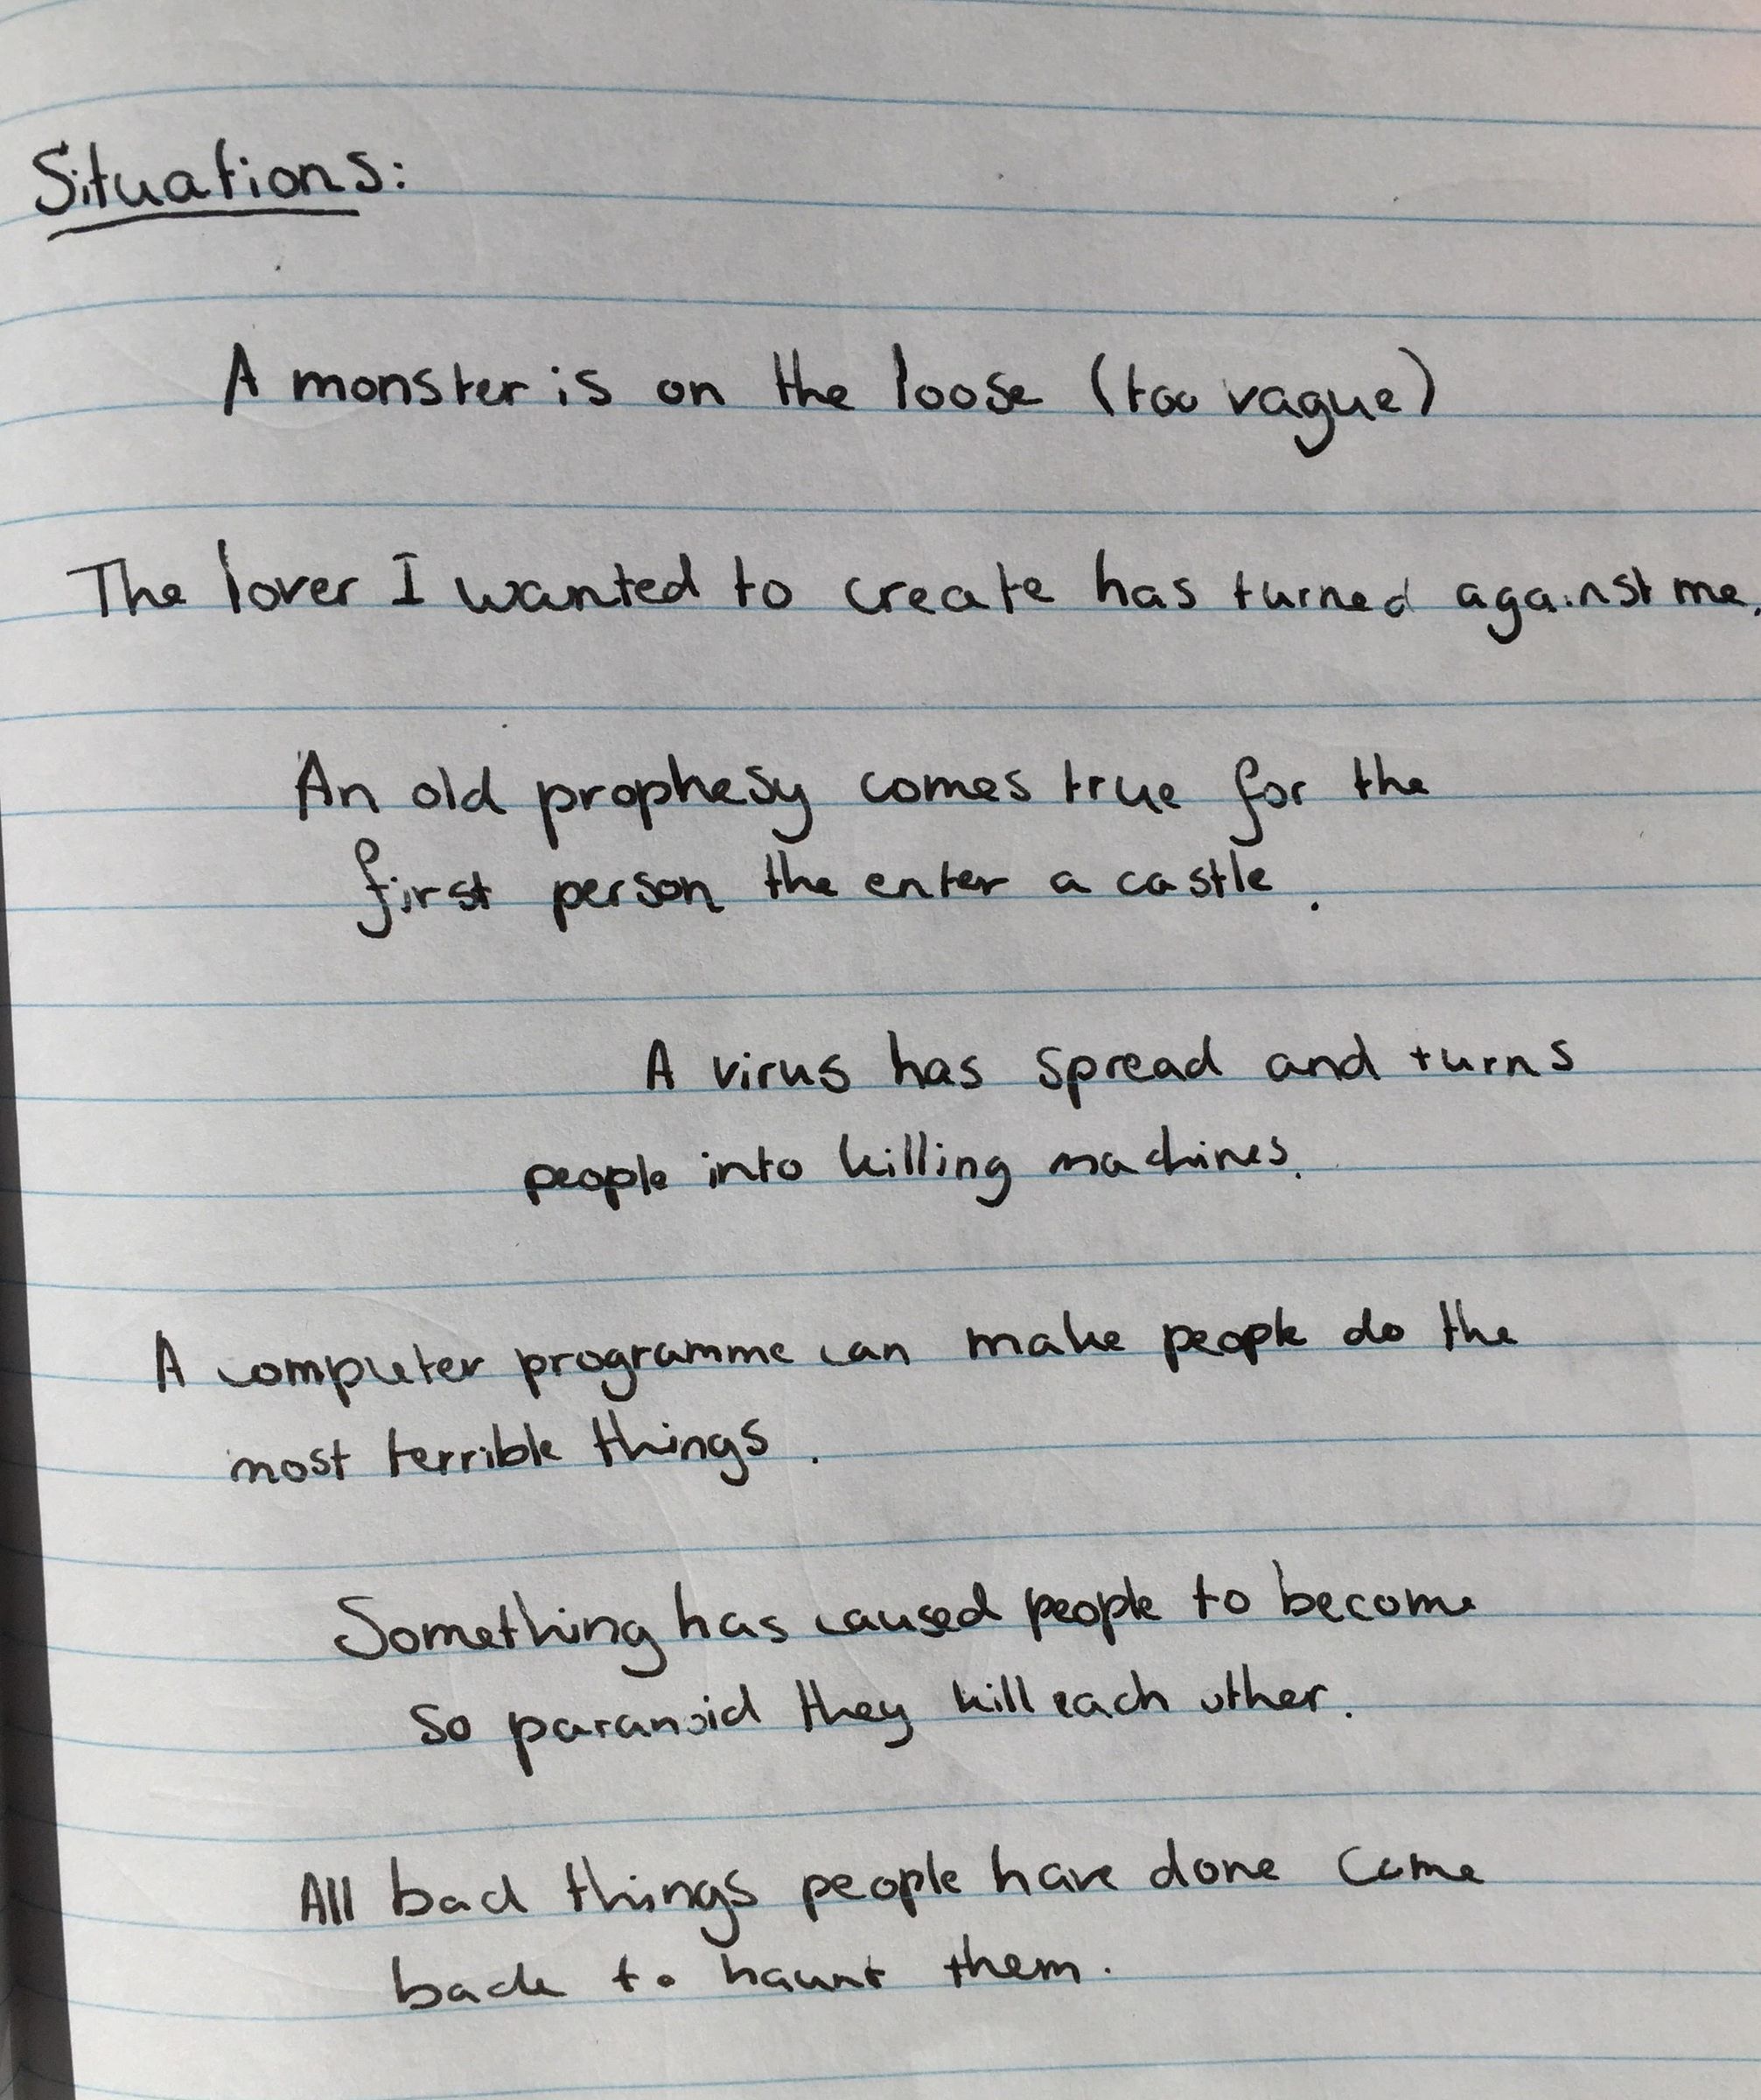 Situations:
A monster is on the loose (too vague)
The lover I wanted to create has turned against me.
An old prophesy comes true for the
first person the enter a castle.
A virus has spread and turns
people into killing machines.
A computer programme can make people do the
most terrible things.
Something has caused people to become
so paranoid they kill each other.
All bad things people have done come
back to haunt them.